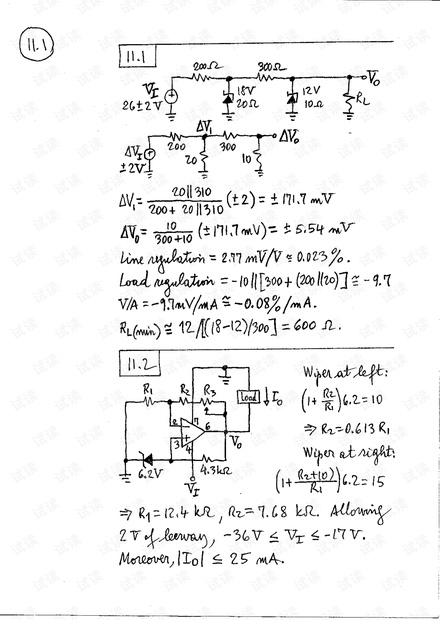 11.1
11.1
200Ω
300Ω
V_I
26±2V
18V
20Ω
12V
10Ω
V_O
R_L
ΔV_I
±2V
200
ΔV_1
300
ΔV_O
20
10
ΔV_1 = 20||310 / (200 + 20||310) (±2) = ±171.7 mV
ΔV_O = 10 / (300+10) (±171.7 mV) = ±5.54 mV
Line regulation = 2.77 mV/V ≅ 0.023%.
Load regulation = -10||[300 + (200||20)] ≅ -9.7
V/A = -9.7mV/mA ≅ -0.08%/mA.
R_L(min) ≅ 12/[(18-12)/300] = 600 Ω.
11.2
R1
R2
R3
Load
I_O
2
7
6
3
4
V_O
6.2V
4.3kΩ
V_I
Wiper at left:
(1+ R2/R1) 6.2 = 10
⇒ R2 = 0.613 R1
Wiper at right:
(1+ (R2+10)/R1) 6.2 = 15
⇒ R1 = 12.4 kΩ, R2 = 7.68 kΩ. Allowing
2V of leeway, -36V ≤ V_I ≤ -17V.
Moreover, |I_O| ≤ 25 mA.